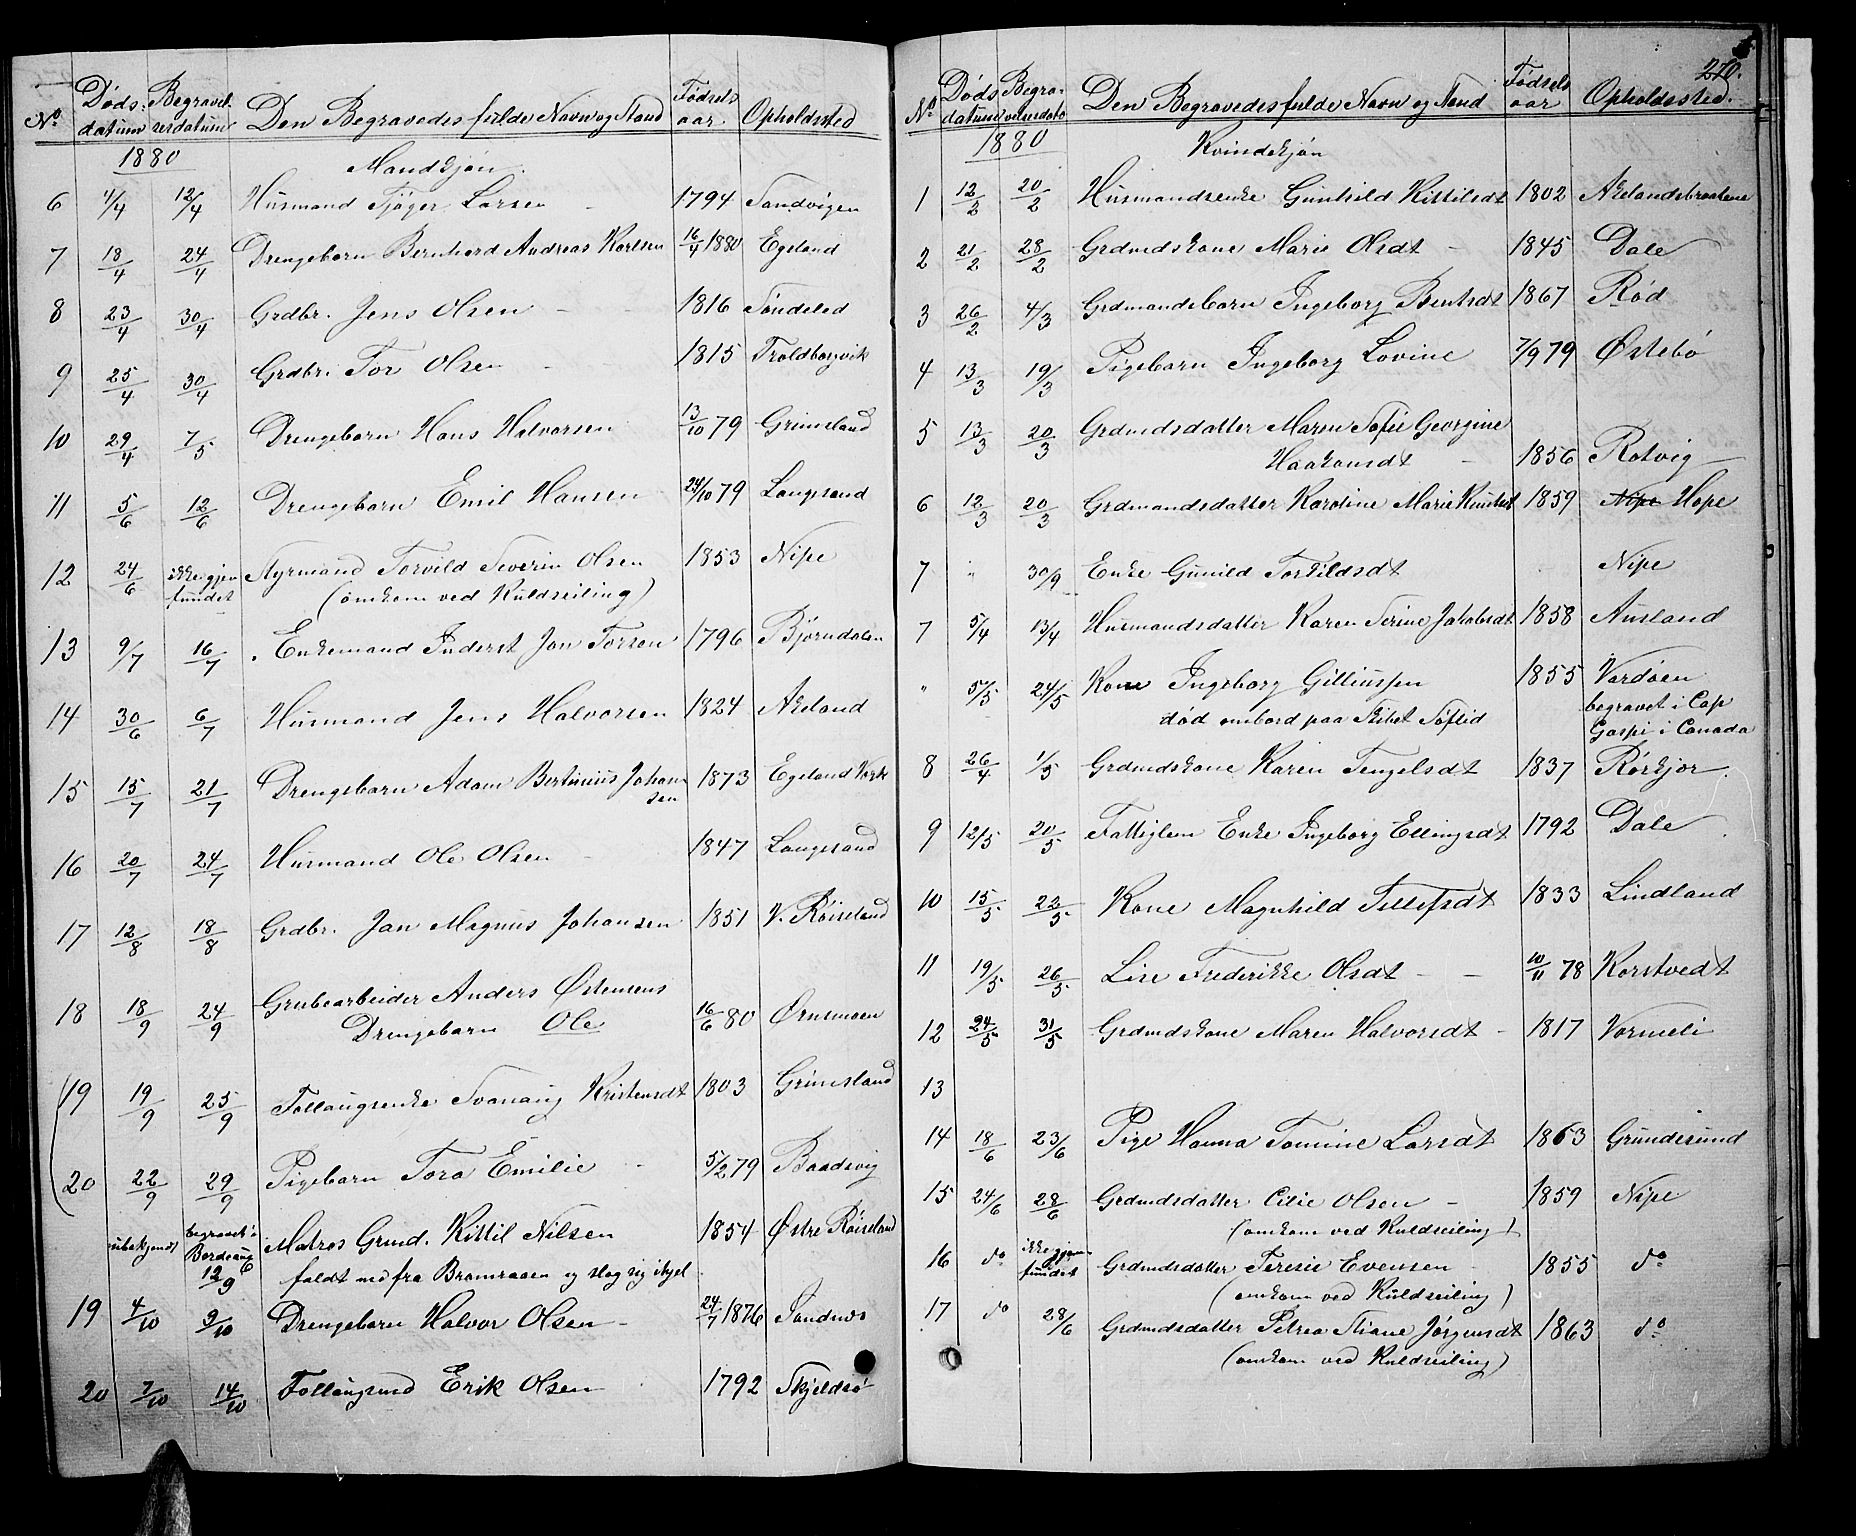 No Døds- Begravel- Den Begravedes fulde Navn og Stand Fødsels Opholdssted
datum sesdatum aar.
1880 Mandkjøn.
6 4/4 12/4 Husmand Tjøger Larsen 1794 Sandvigen
7 18/4 24/4 Drengebarn Bernhard Andreas Karlsen 16/4 1880 Egeland
8 23/4 30/4 Grdbr. Jens Olsen 1816 Søndeled
9 25/4 30/4 Grdbr. Tor Olsen 1815 Troldbergvik
10 29/4 7/5 Drengebarn Hans Halvorsen 13/10 79 Grimeland
11 5/6 12/6 Drengebarn Emil Hansen 24/10 79 Langsand
12 24/6 ikke gjen Styrmand Torvild Severin Olsen 1853 Nipe
fundet (omkom ved Kuldseiling)
13 9/7 16/7 Enkemand Inderst Jon Torsen 1796 Bjørndalen
14 30/6 6/7 Husmand Jens Halvorsen 1824 Akeland
15 15/7 21/7 Drengebarn Adam Bertinius Johan 1873 Egeland Værk
sen
16 20/7 24/7 Husmand Ole Olsen 1847 Langsand
17 12/8 18/8 Grdbr. Jan Magnus Johansen 1851 V. Røiseland
18 18/9 24/9 Grubearbeider Anders Østensens
Drengebarn Ole 16/6 80 Ørnsmoen
(19 19/9 25/9 Follaugsenke Svanaug Kristensdt 1803 Grimesland
(20 22/9 29/9 Pigebarn Tora Emilie 5/2 79 Baadsvig
ubekjendt begravet i Matros Grmd. Kittil Nilsen 1854 Østre Røiseland
Bordeaug
12/9 faldt ned fra Bramraaen og slog sig ihjel
19 4/10 9/10 Drengebarn Halvor Olsen 24/7 1876 Sandnes
20 7/10 14/10 Follaugsmd Erik Olsen 1792 Skjeldsø
270.
No Døds Begra- Den Begravedes fulde Navn og Stand Fødsels Opholdssted.
datum velsesdato aar
1880 Kvindekjøn
1 12/2 20/2 Husmandsenke Gunhild Kittilsdt 1802 Akelandsbraatene
2 21/2 28/2 Grdmdskone Marie Olsdt 1845 Dale
3 26/2 4/3 Grdmandsbarn Ingeborg Bentsdt 1867 Rød
4 13/3 19/3 Pigebarn Ingeborg Lovine 7/9 79 Østebø
5 13/3 20/3 Grdmdsdatter Maren Sofie Georgine
Haakonsdt 1856 Rotvig
6 12/3 20/3 Grdmandsdatter Karoline Marie Knutsdt 1859 Nipe Hope
7 " 30/9 Enke Gunild Torkildsdt Nipe
7 5/4 13/4 Husmandsdatter Karen Serine Jakobsdt 1858 Ausland
" 5/5 24/5 Kone Ingeborg Gilliussen 1855 Vardøen
død ombord paa Skibet Søflid begravet i Cap
Gaspi i Canada
8 26/4 1/5 Grdmdskone Karen Tengelsdt 1837 Rørkjør
9 12/5 20/5 Fattiglem Enke Ingeborg Ellingsdt 1792 Dale
10 15/5 22/5 Kone Magnhild Tellefsdt 1833 Lindland
11 19/5 26/5 Lise Frederikke Olsdt 10/11 78 Korstvedt
12 24/5 31/5 Grdmdskone Maren Halvorsdt 1817 Vormeli
13
14 18/6 23/6 Pige Hanna Tomine Larsdt 1863 Grundesund
15 24/6 28/6 Grdmdsdatter Cilie Olsen 1859 Nipe
(omkom ved Kuldseiling)
16 do ikke gjen- Grdmdsdatter Teresie Evensen 1855 do
fundet (omkom ved Kuldseiling)
17 do 28/6 Grdmdsdatter Petrea Stiane Jørgensdt 1863 do
(omkom ved Kuldseiling)